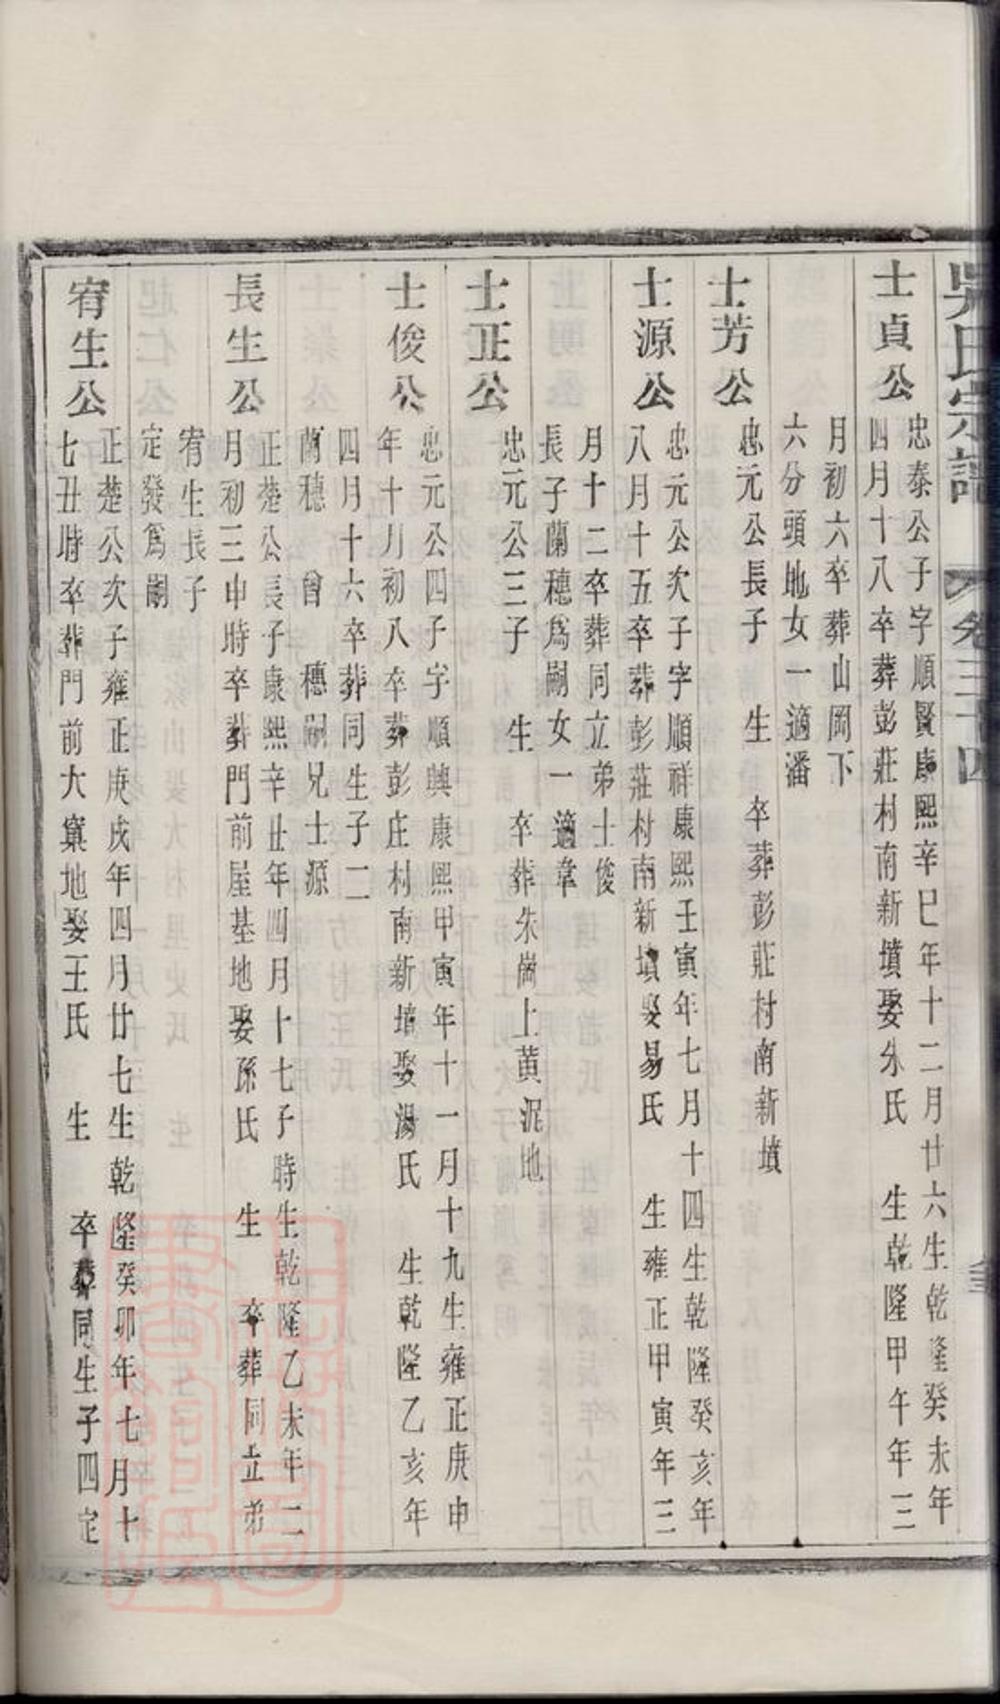 吳氏宗譜 卷三十四
士貞公
忠泰公子字順賢康熙辛巳年十二月廿六生乾隆癸未年
四月十八卒葬彭莊村南新墳娶朱氏 生乾隆甲午年三
月初六卒葬山岡下
六分頭地女一適潘
士芳公
忠元公長子 生 卒葬彭莊村南新墳
士源公
忠元公次子字順祥康熙壬寅年七月十四生乾隆癸亥年
八月十五卒葬彭莊村南新墳娶易氏 生雍正甲寅年三
月十二卒葬同立弟士俊
長子蘭穗為嗣女一適韋
士正公
忠元公三子 生 卒葬朱崗上黃泥地
士俊公
忠元公四子字順興康熙甲寅年十一月十九生雍正庚申
年十月初八卒葬彭庄村南新墳娶湯氏 生乾隆乙亥年
四月十六卒葬同生子二
蘭穗 曾 穗嗣兄士源
長生公
正楚公長子康熙辛丑年四月十七子時生乾隆乙未年二
月初三申時卒葬門前屋基地娶孫氏 生 卒葬同立弟
宥生長子
定發為嗣
宥生公
正楚公次子雍正庚戌年四月廿七生乾隆癸卯年七月十
七丑時卒葬門前大窠地娶王氏 生 卒葬同生子四定